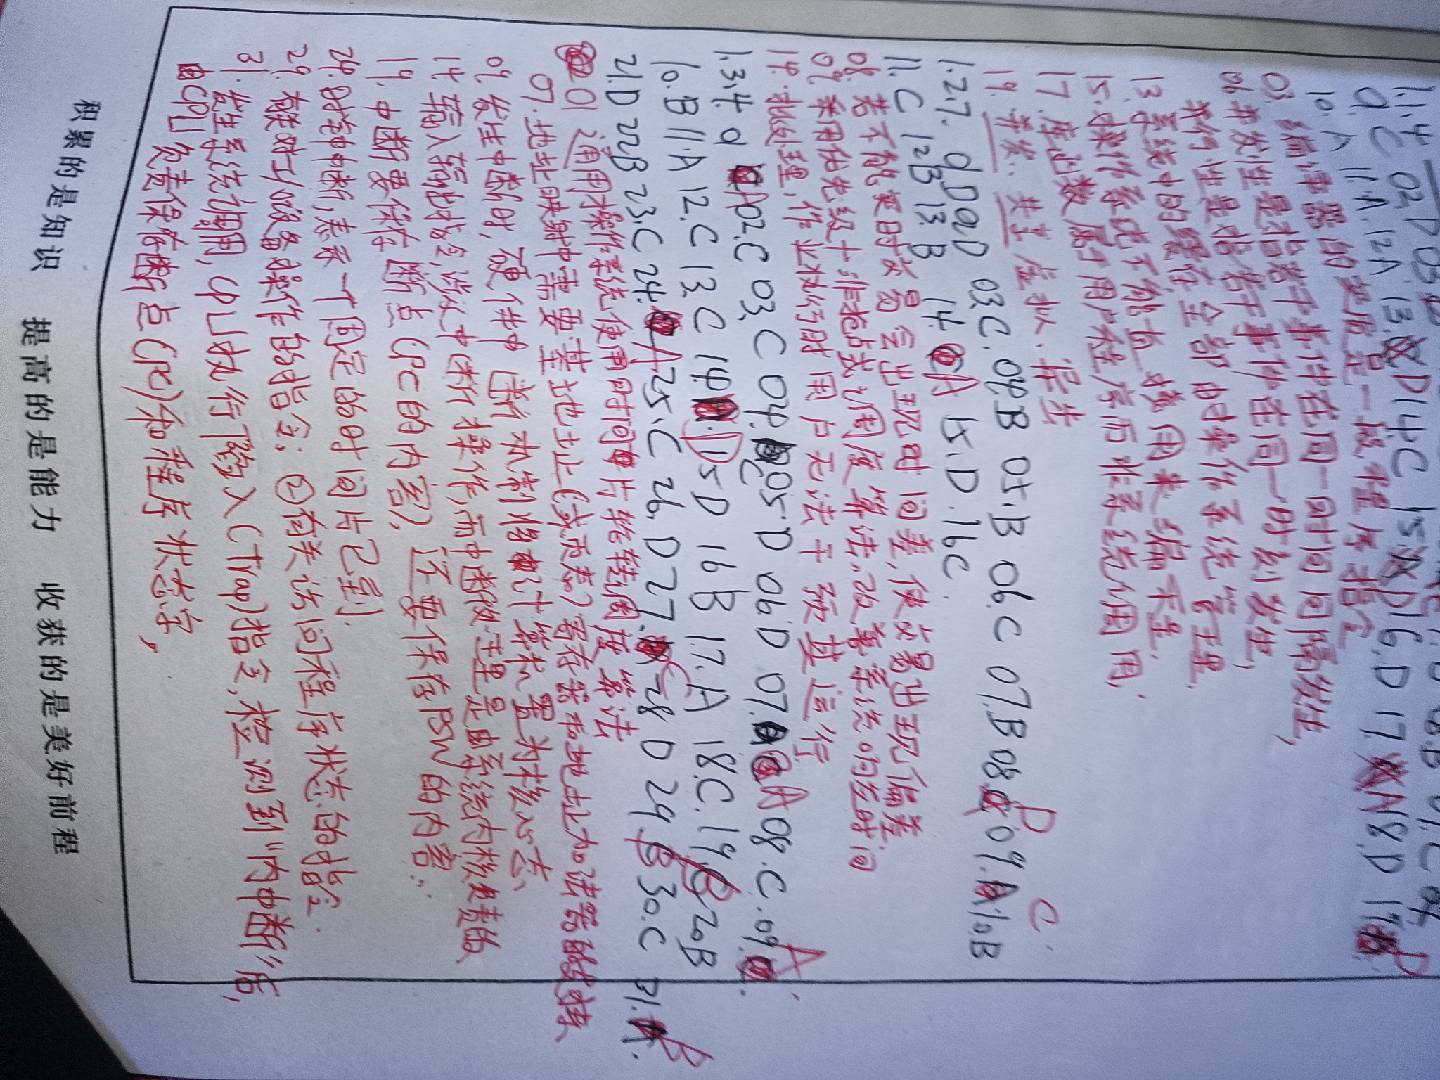 1.1.4
9.C 02.D 03. 8.B 09.C
10.A 11.A. 12A 13.D 14.C 15.D 16.D 17.A 18.D 19.D
03.编译器的实质是一段程序指令
06并发性是指若干事件在同一时间间隔发生,
并行性是指若干事件在同一时刻发生,
13.系统中的缓存全部由操作系统管理.
15.操作系统不能直接用来编程.
17.库函数属于用户程序而非系统调用,
19.并发.共享 虚拟.异步
1.2.7. 03.C.04.B 05.B 06.C 07.B 08.D 09.C 10.B
11.C 12B 13.B 14.A 15.D.16C.
08.若不能实时交易会出现时间差,使交易出现偏差.
09.采用优先级+非抢占式调度算法.改善系统响应时间
14.批处理,作业执行时用户无法干预其运行
1.3.4. 01 A 02.C 03.C 04.C 05.D 06.D 07.A 08.C.09.A
10.B 11.A 12.C 13.C 14.D 15D 16B 17.A 18.C.19.B 20B
21.D 22B 23.C 24.A 25.C 26.D 27.C 28 D 29.B 30.C 31.B
01 通用操作系统使用时间片轮转调度算法
07.地址映射中需要基地址(或页表)寄存器和地址加法器的支持
09.发生中断时,硬件中断机制将计算机置为核心态
14.输入输出指令,涉及中断操作,而中断处理是由系统内核负责的
19.中断要保存断点(PC的内容),还要保存PSW的内容.
24.时钟中断,表示一个固定的时间片已到.
29.有关对I/O设备操作的指令;②有关访问程序状态的指令.
31.发生系统调用,CPU执行陷入(Trap)指令,检测到“内中断”后,
由CPU负责保存断点(PC)和程序状态字,
积累的是知识 提高的是能力 收获的是美好前程